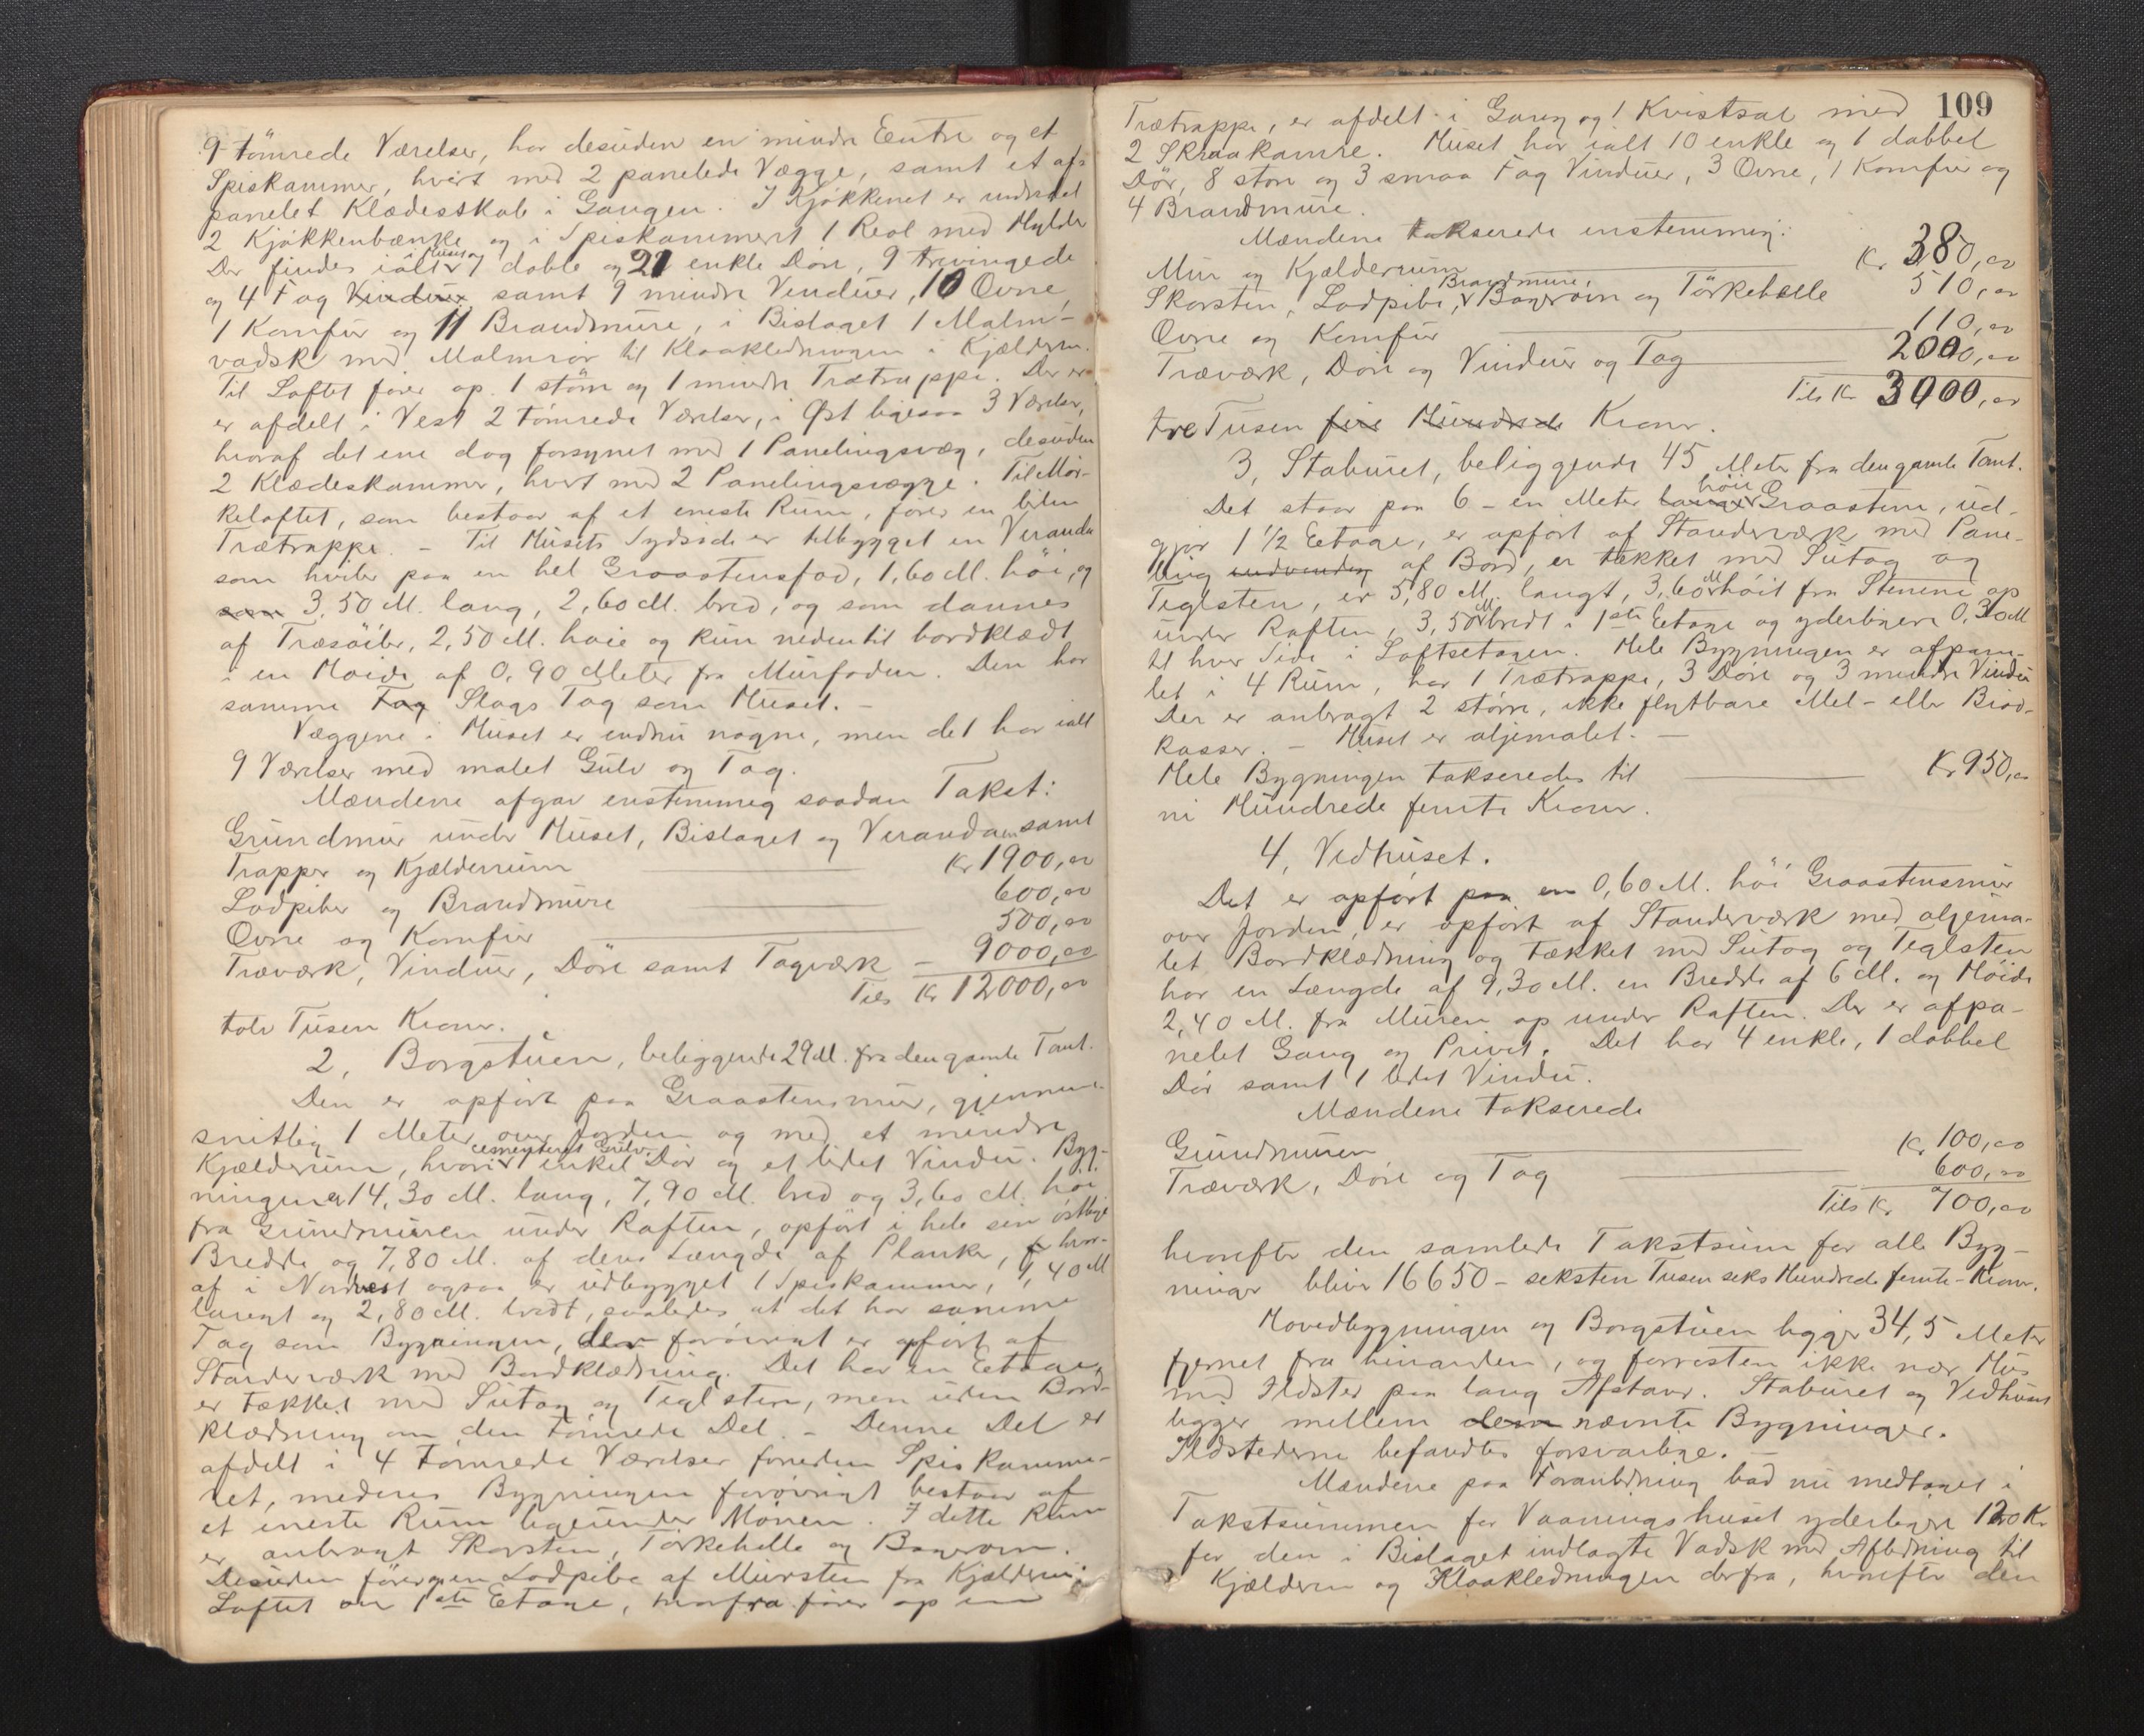 9 tömrede Værelser, har desuden en mindre Entre og et
Spiskammer, hvert med 2 panelede Vægge, samt et af-
panelet Klædesskab i Gangen. I Kjøkkenet er indredet
2 Kjøkkenbænke og i Spiskammeret 1 Reol med Hylder
Der findes ialt i Huset og 7 doble og 21 enkle Döre, 9 trevingede
og 4 Fag Vinduer samt 9 mindre Vinduer, 10 Ovne,
1 Komfur og 11 Brandmure, i Bislaget 1 Malm-
vadsk med Malmrör til Kloakledningen i Kjælderen.
Til Loftet förer op 1 större og 1 mindre Trætrappe. Der er
er afdelt i Vest 2 tömrede Værelser, i Øst ligesaa 3 Værelser,
hvoraf det ene dog forsynet med 1 Panelingsvæg, desuden
2 Klædeskammer, hvert med 2 Panelingsvægge. Til Mör-
keloftet, som bestaar af et eneste Rum, förer en liden
Trætrappe. – Til Husets Sydside er tilbygget en Veranda
som hviler paa en hel Graastensfod, 1,60 M. höi, og
som 3,50 M. lang, 2,60 M. bred, og som dannes
af Træsöiler, 2,50 M. høie og kun nedentil bordklædt
i en Høide af 0,90 Meter fra Murfoden. Den har
samme Fag Slags Tag som Huset. –
Væggene i Huset er endnu nøgne, men det har ialt
9 Værelser med malet Gulv og Tag.
Mændene afgav enstemmig saadan Takst:
Grundmur under Huset, Bislaget og Verandaen samt
Trapper og Kjælderrum Kr 1900,00
Lodpiber og Brandmure 600,00
Ovne og Komfur 500,00
Træværk, Vinduer, Döre samt Tagværk – 9000,00
Tils Kr 12000,00
tolv Tusen Kroner.
2, Borgstuen, beliggende 29 M. fra den gamle Tomt.
Den er opfört paa Graastensmur, gjennem-
snitlig 1 Meter over Jorden og med et mindre
Kjælderrum, hvori cementeret Gulv 1 enkel Dör og et lidet Vindu. Byg-
ningen er 14,30 M. lang, 7,90 M. bred og 3,60 M. høi
fra Grundmuren under Raften, opfört i hele sin østlige
Bredde og 7,80 M. af dens Længde af Planker, hvor-
af i Nordvest ogsaa er udbygget 1 Spiskammer, 1,40 M
langt og 2,80 M. bredt, saaledes at det har samme
Tag som Bygningen, der forövrigt er opfört af
Standerværk med Bordklædning. Det har en Etage,
er tækket med Sutag og Teglsten, men uden Bord-
klædning om den tömrede Del. – Denne Del er
afdelt i 4 tömrede Værelser foruden Spiskamme-
ret, medens Bygningen forövrigt bestaar af
et eneste Rum ligeunder Mönen. I dette Rum
er anbragt Skorsten, Törkehelle og Bagerovn.
Desuden förer en Lodpibe af Mursten fra Kjælderen
Loftet over 1ste Etage, hvorfra förer op en
109
Trætrappe, er afdelt i Gang og 1 Kvistsal med
2 Skraakamre. Huset har ialt 10 enkle og 1 dobbel
Dör, 8 store og 3 smaa Fag Vinduer, 3 Ovne, 1 Komfur og
4 Brandmure.
Mændene takserede enstemmig:
Mur og Kjælderrum Kr 380,00
Skorsten, Lodpibe, Brandmure, Bagerovn og Törkehelle 510,00
Ovne og Komfur 110,00
Træværk, Döre og Vinduer og Tag 2000,00
Tils Kr 3000,00
tre Tusen fire Hundrede Kroner.
3, Staburet, beliggende 45 Meter fra den gamle Tomt.
Det staar paa 6 – en Meter lange høie Graastene, ud-
gjør 1 1/2 Etage, er opfört af Standerværk med Pane-
ling indvendig af Bord, er tækket med Sutag og
Teglsten, er 5,80 M. langt, 3,60 M høit fra Stenene op
under Raften, 3,50 M bredt i 1ste Etage og yderligere 0,30 M
til hver Side i Loftsetagen. Hele Bygningen er afpane-
let i 4 Rum, har 1 Trætrappe, 3 Döre og 3 mindre Vindu
Der er anbragt 2 större, ikke flytbare Mel- eller Bröd-
kasser. – Huset er oljemalet. –
Hele Bygningen takseredes til Kr 950,00
ni Hundrede femti Kroner.
4, Vedhuset.
Det er opfört paa en 0,60 M. höi Graastensmur
over Jorden, er opfört af Standerværk med oljema-
let Bordklædning og tækket med Sutag og Teglsten
har en Længde af 9,30 M. en Bredde af 6 M. og Høide
2,40 M. fra Muren op under Raften. Der er afpa-
nelet Gang og Privet. Det har 4 enkle, 1 dobbel
Dör samt 1 lidet Vindu.
Mændene takserede
Grundmuren Kr 100,00
Træværk, Döre og Tag 600,00
Tils Kr 700,00
hvorefter den samlede Takstsum for alle Byg-
ninger bliver 16650 – seksten Tusen seks Hundrede femti – Kroner.
Hovedbygningen og Borgstuen ligger 34,5 Meter
fjernet fra hinanden, og forresten ikke nær Hus
med Ildsted paa lang Afstand. Staburet og Vedhuset
ligger mellem de nævnte Bygninger.
Ildstederne befandtes forsvarlige. –
Mændene paa Foranledning bad nu medtaget i
Takstsummen for Vaaningshuset yderligere 120 Kr
for den i Bislaget indlagte Vadsk med Afledning til
Kjælderen og Kloakledningen derfra, hvorefter den